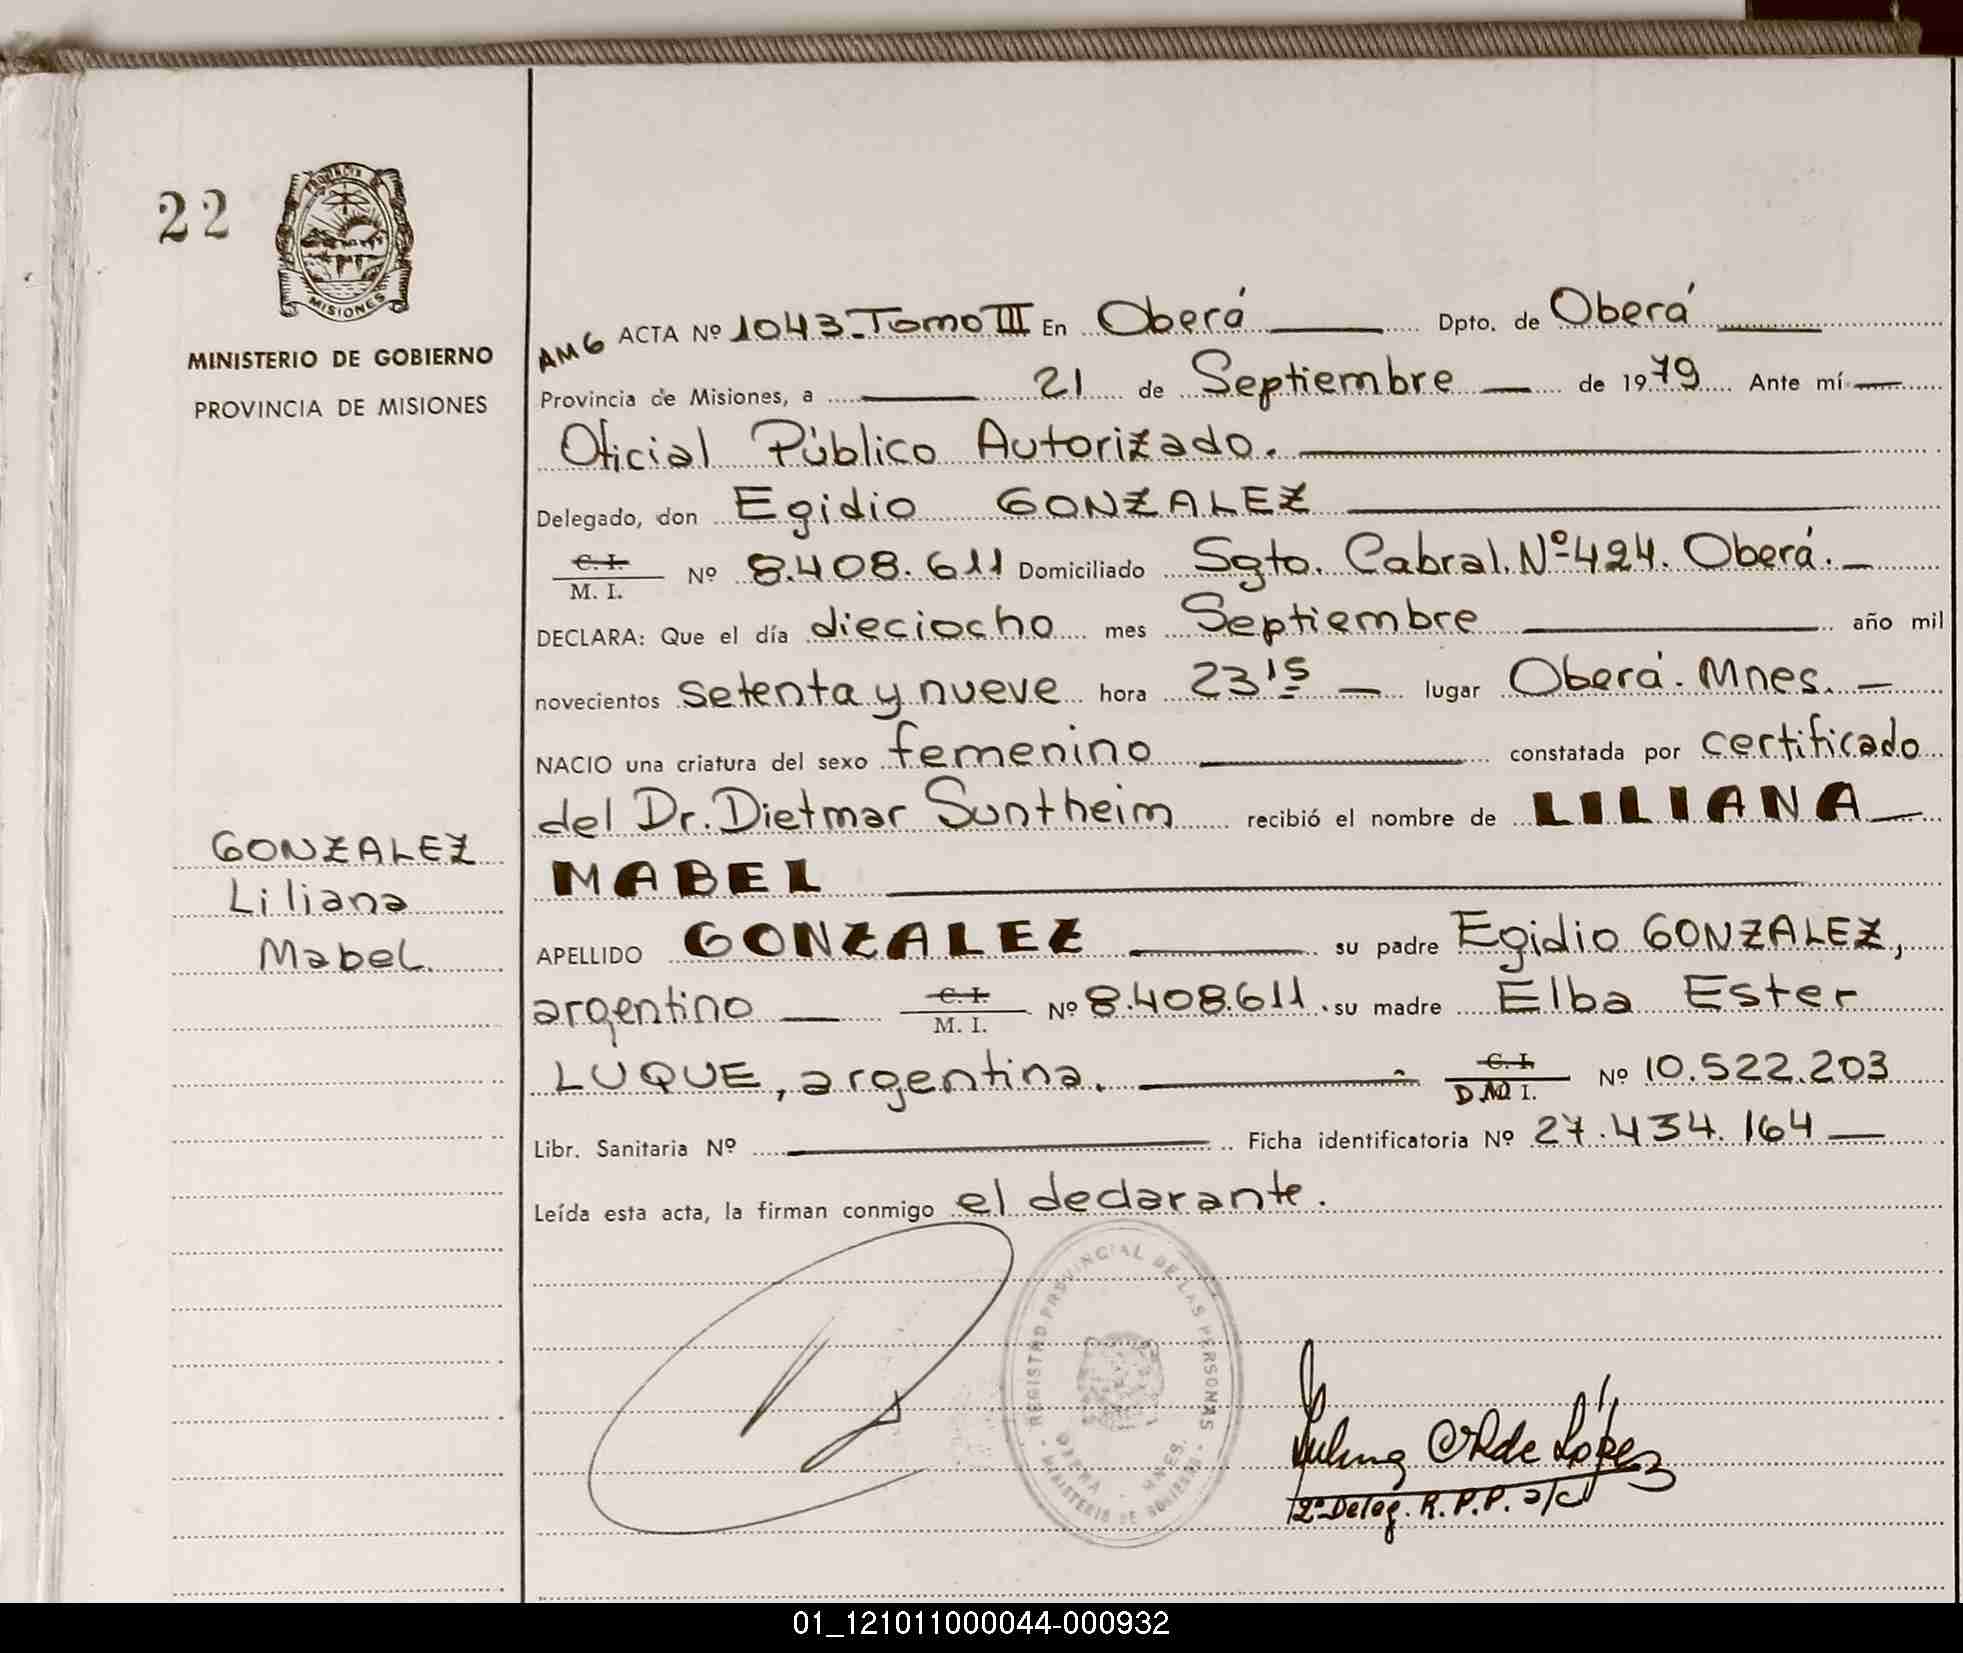 22
PROVINCIA DE
MISIONES
MINISTERIO DE GOBIERNO
PROVINCIA DE MISIONES
GONZALEZ
Liliana
Mabel.
AMG ACTA Nº 1043-Tomo III En Oberá Dpto. de Oberá
Provincia de Misiones, a 21 de Septiembre de 1979 Ante mí
Oficial Público Autorizado.
Delegado, don Egidio GONZALEZ
C. I.
M. I. Nº 8.408.611 Domiciliado Sgto. Cabral. Nº 424. Oberá.
DECLARA: Que el día dieciocho mes Septiembre año mil
novecientos setenta y nueve hora 23 15 lugar Oberá. Mnes.
NACIO una criatura del sexo femenino constatada por certificado
del Dr. Dietmar Suntheim recibió el nombre de LILIANA
MABEL
APELLIDO GONZALEZ su padre Egidio GONZALEZ,
argentino C. I. M. I. Nº 8.408.611. su madre Elba Ester
LUQUE, argentina. C. I. D.N.I. Nº 10.522.203
Libr. Sanitaria Nº Ficha identificatoria Nº 27.434.164
Leída esta acta, la firman conmigo el declarante.
REGISTRO PROVINCIAL DE LAS PERSONAS
OBERA - MNES.
MINISTERIO DE GOBIERNO
López
2º Deleg. R.P.P. a/c
01_121011000044-000932